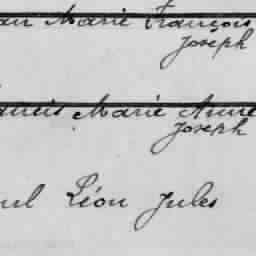 Marie François
Joseph
Marie Anne
Joseph
Léon Jules